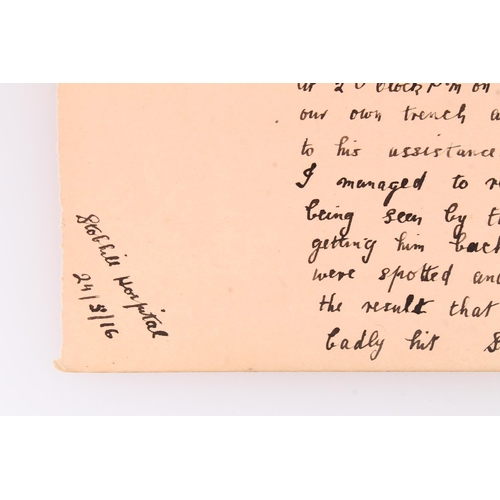 at 2 O'clock P.M on
our own trench a
to his assistance
I managed to r
being seen by t
getting him back
were spotted and
the result that
badly hit
Stobhill Hospital
24/5/16